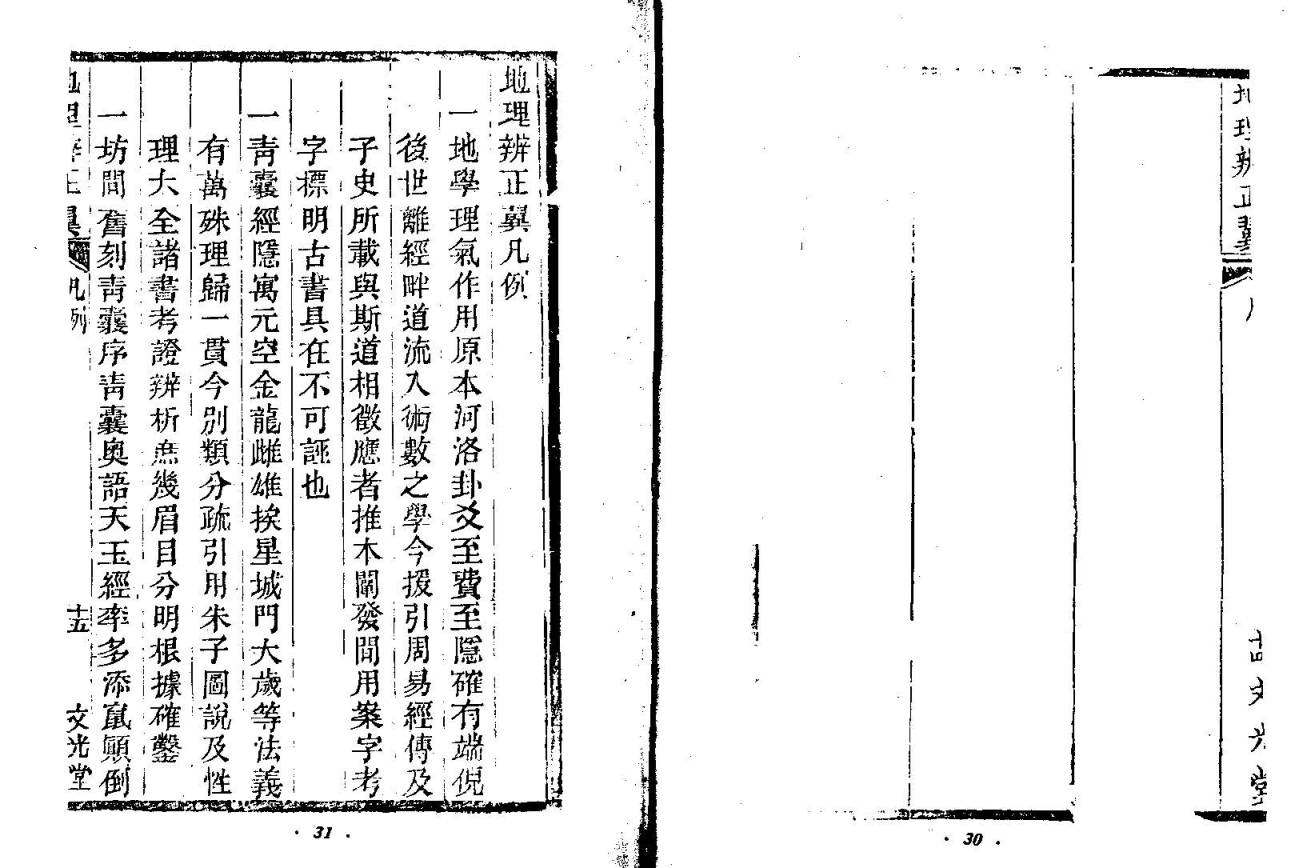 地理辨正翼
古文光堂
30
地理辨正翼凡例
一地學理氣作用原本河洛卦爻至費至隱確有端倪
後世離經畔道流入術數之學今援引周易經傳及
子史所載與斯道相徵應者推本闡發間用案字考
字標明古書具在不可誣也
一靑囊經隱寓元空金龍雌雄挨星城門大歲等法義
有萬殊理歸一貫今別類分疏引用朱子圖說及性
理大全諸書考證辨析庶幾眉目分明根據確鑿
一坊間舊刻靑囊序靑囊奧語天玉經率多添鼠顚倒
地理辨正翼 凡例 十五 文光堂
31